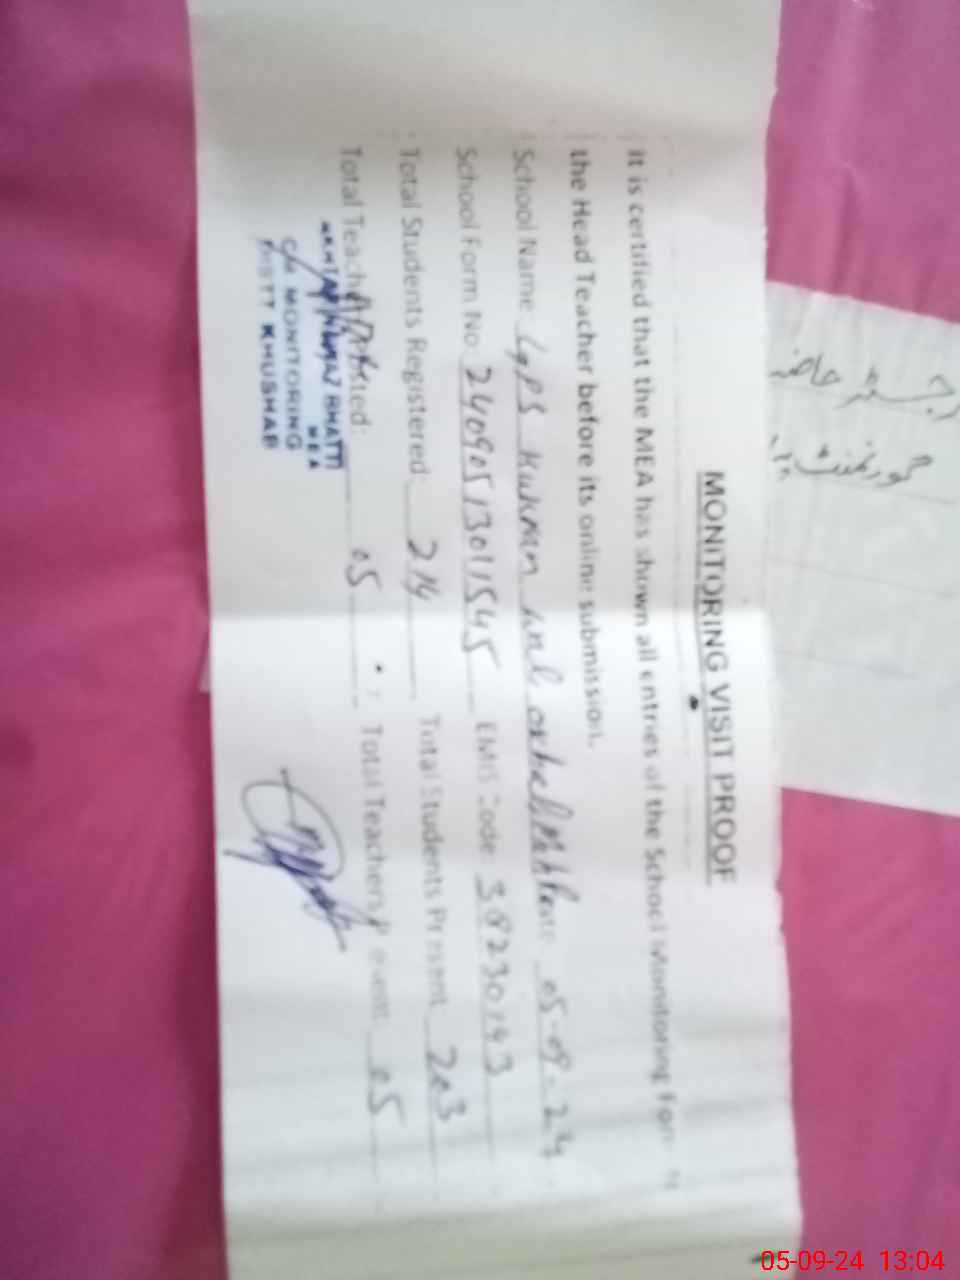 MONITORING VISIT PROOF
It is certified that the MEA has shown all entries of the School Monitoring Form to
the Head Teacher before its online submission.
School Name GPS Date 05-09-24
School Form No 24090513011545 EMIS Code 38230143
Total Students Registered 214 Total Students Present 203
Total Teachers Posted: 05 Total Teachers Present 05
BHATTI
MEA
MONITORING
DISTT KHUSHAB
رجسٹر حاضری
گورنمنٹ
05-09-24 13:04